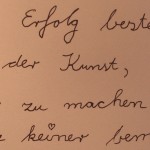 Erfolg beste
der Kunst,
zu machen
keiner bem